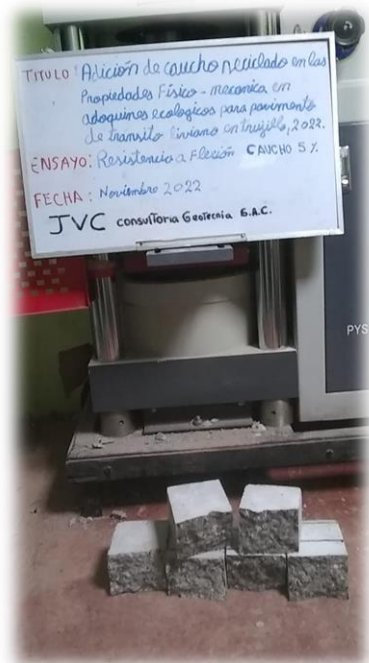 TITULO: Adición de caucho reciclado en las
Propiedades Físico - mecanica en
adoquines ecologicos para pavimento
de transito liviano en trujillo, 2022.
ENSAYO: Resistencia a Flexión CAUCHO 5 %
FECHA: Noviembre 2022
JVC consultoria Geotecnia S.A.C.
PYS